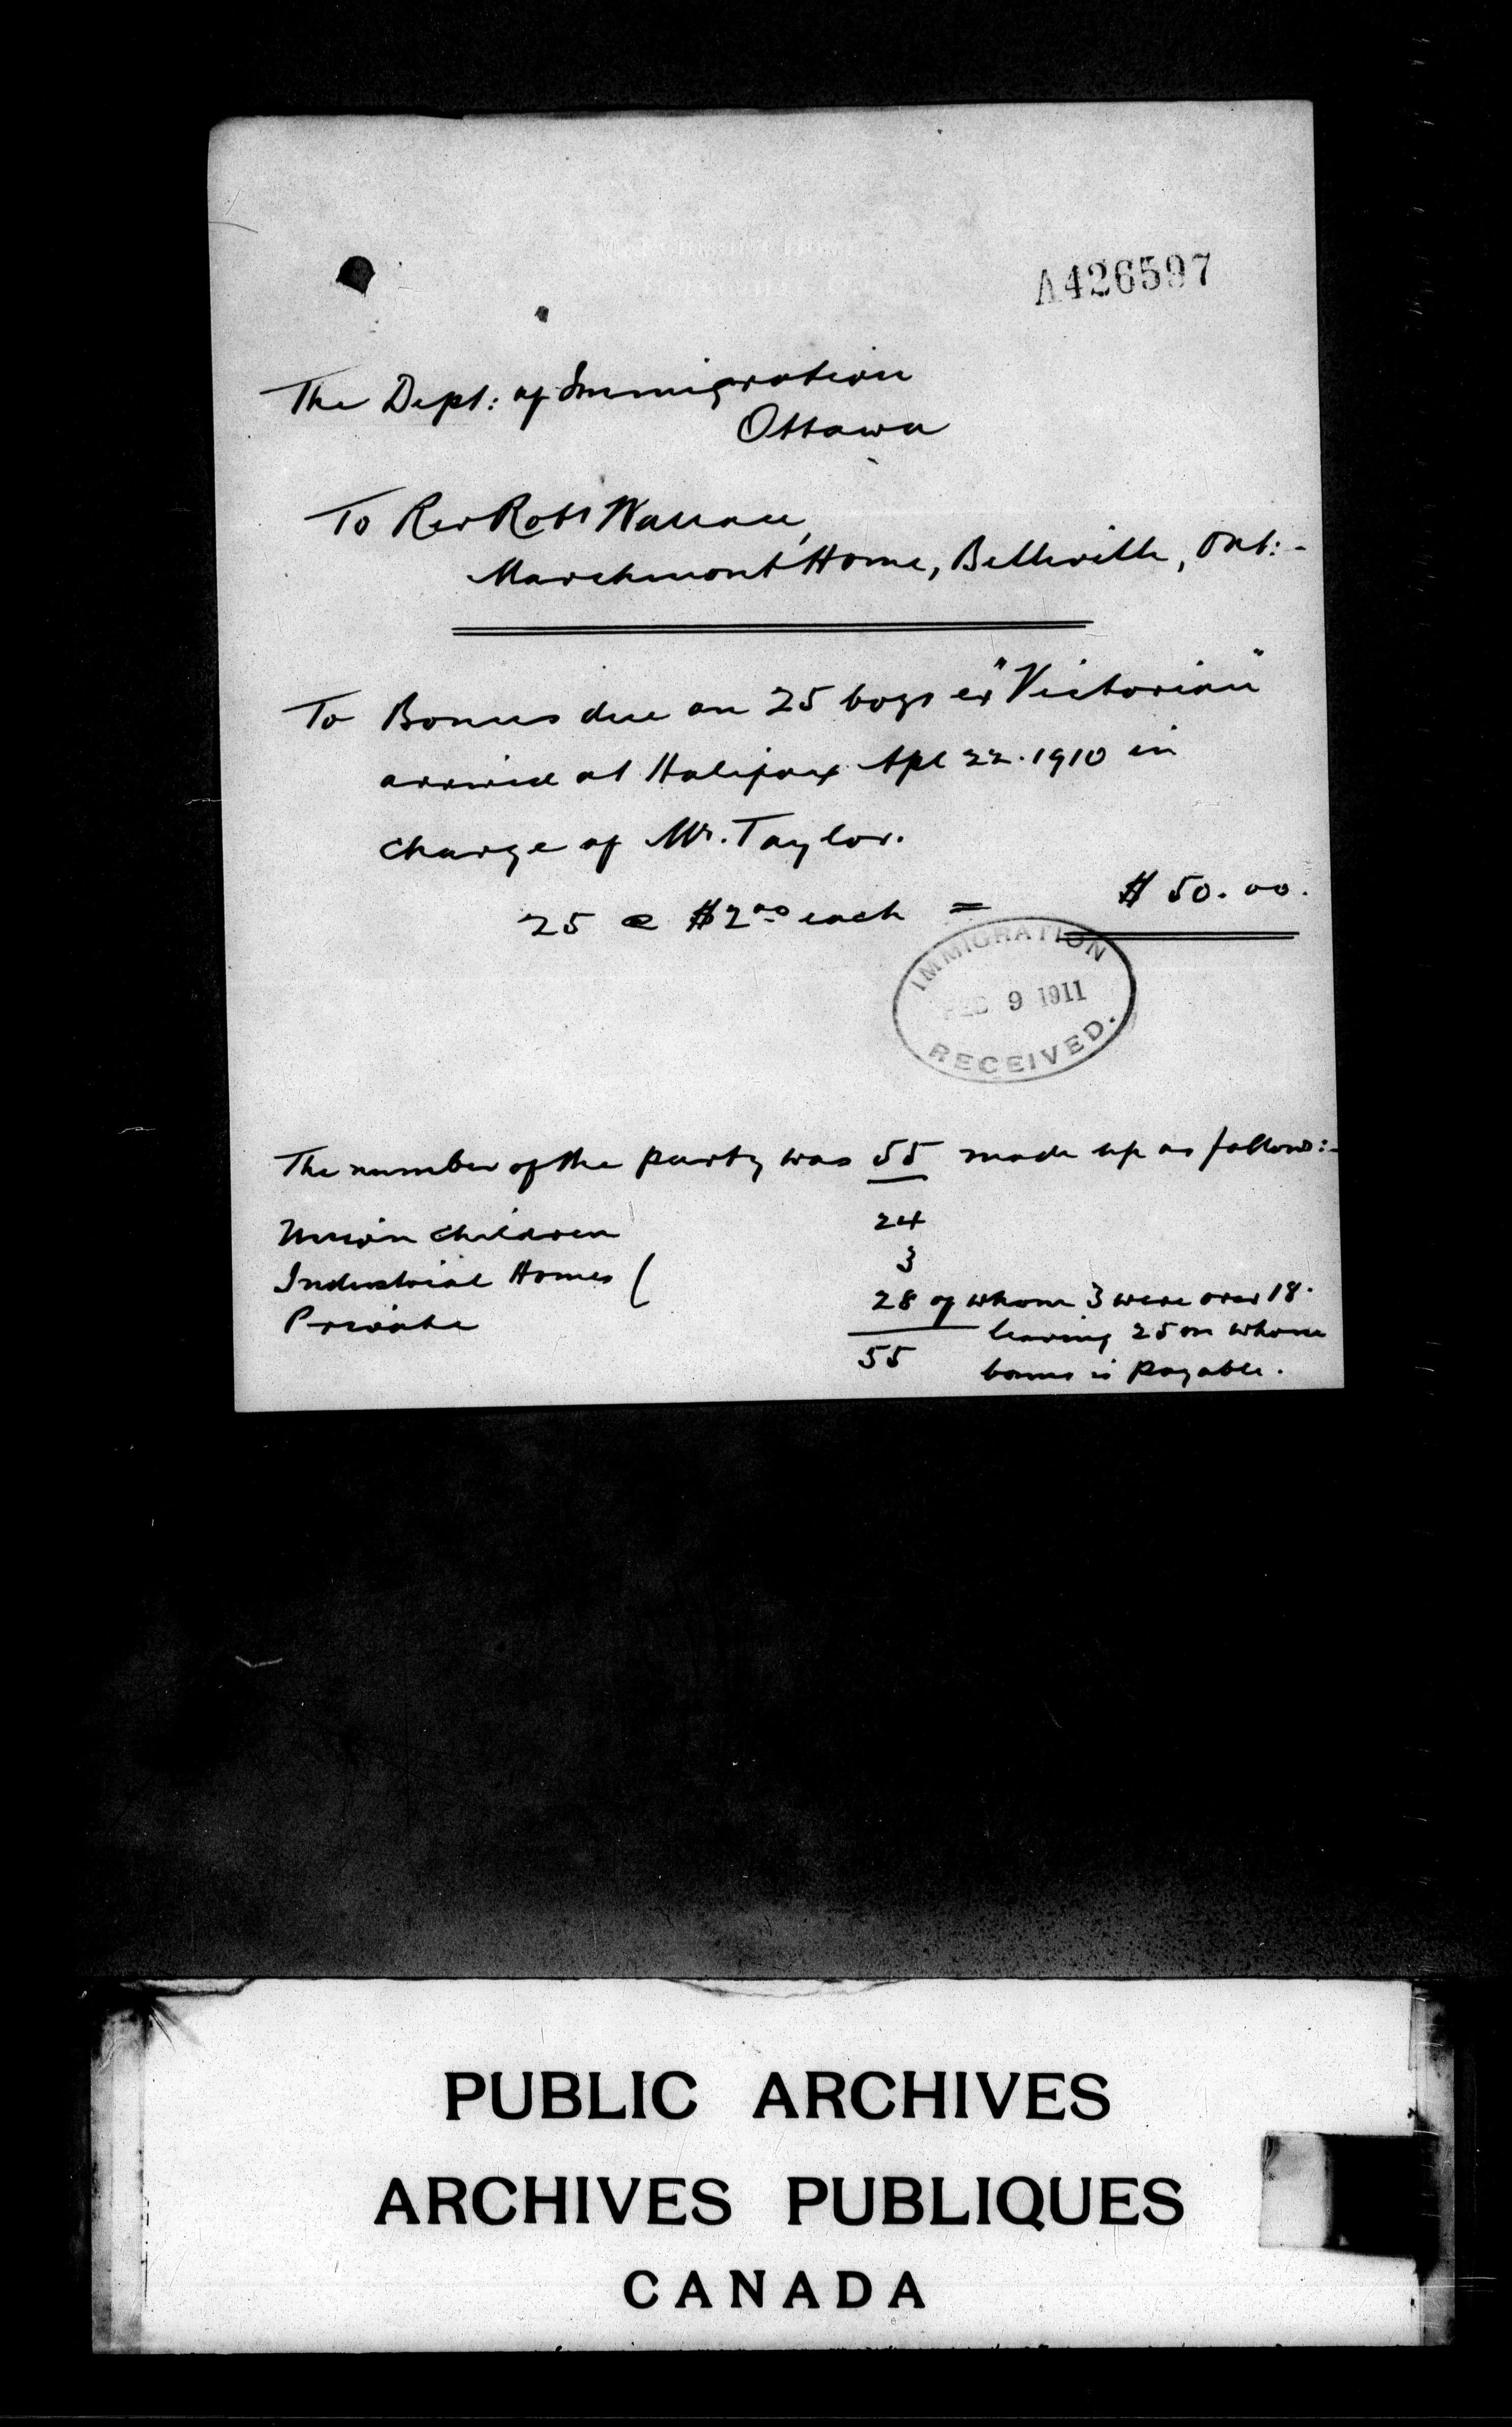 A426597
The Dept: of Immigration
Ottawa
To Rev Robt Wallace,
Marchmont Home, Belleville, Ont:-
To Bonus due on 25 boys ex "Victorian"
arrived at Halifax Apl 22. 1910 in
charge of Mr. Taylor.
25 @ $2.00 each = $50.00.
IMMIGRATION
FEB 9 1911
RECEIVED.
The number of the party was 55 made up as follows:-
Union children 24
Industrial Homes ( 3
Private 28 of whom 3 were over 18.
leaving 25 on whom
55 bonus is payable.
PUBLIC ARCHIVES
ARCHIVES PUBLIQUES
CANADA